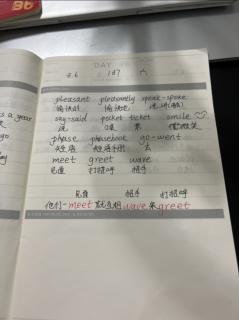 DAY
6.6 187 六
pleasant pleasantly speak-spoke
愉快的 愉快地
say-said pocket ticket smile
说 口袋 票 微笑
phrase phrasebook go-went
短语 短语手册 去
meet greet wave
见面 打招呼 招手
见面 招手 打招呼
他们一meet就互相wave来greet